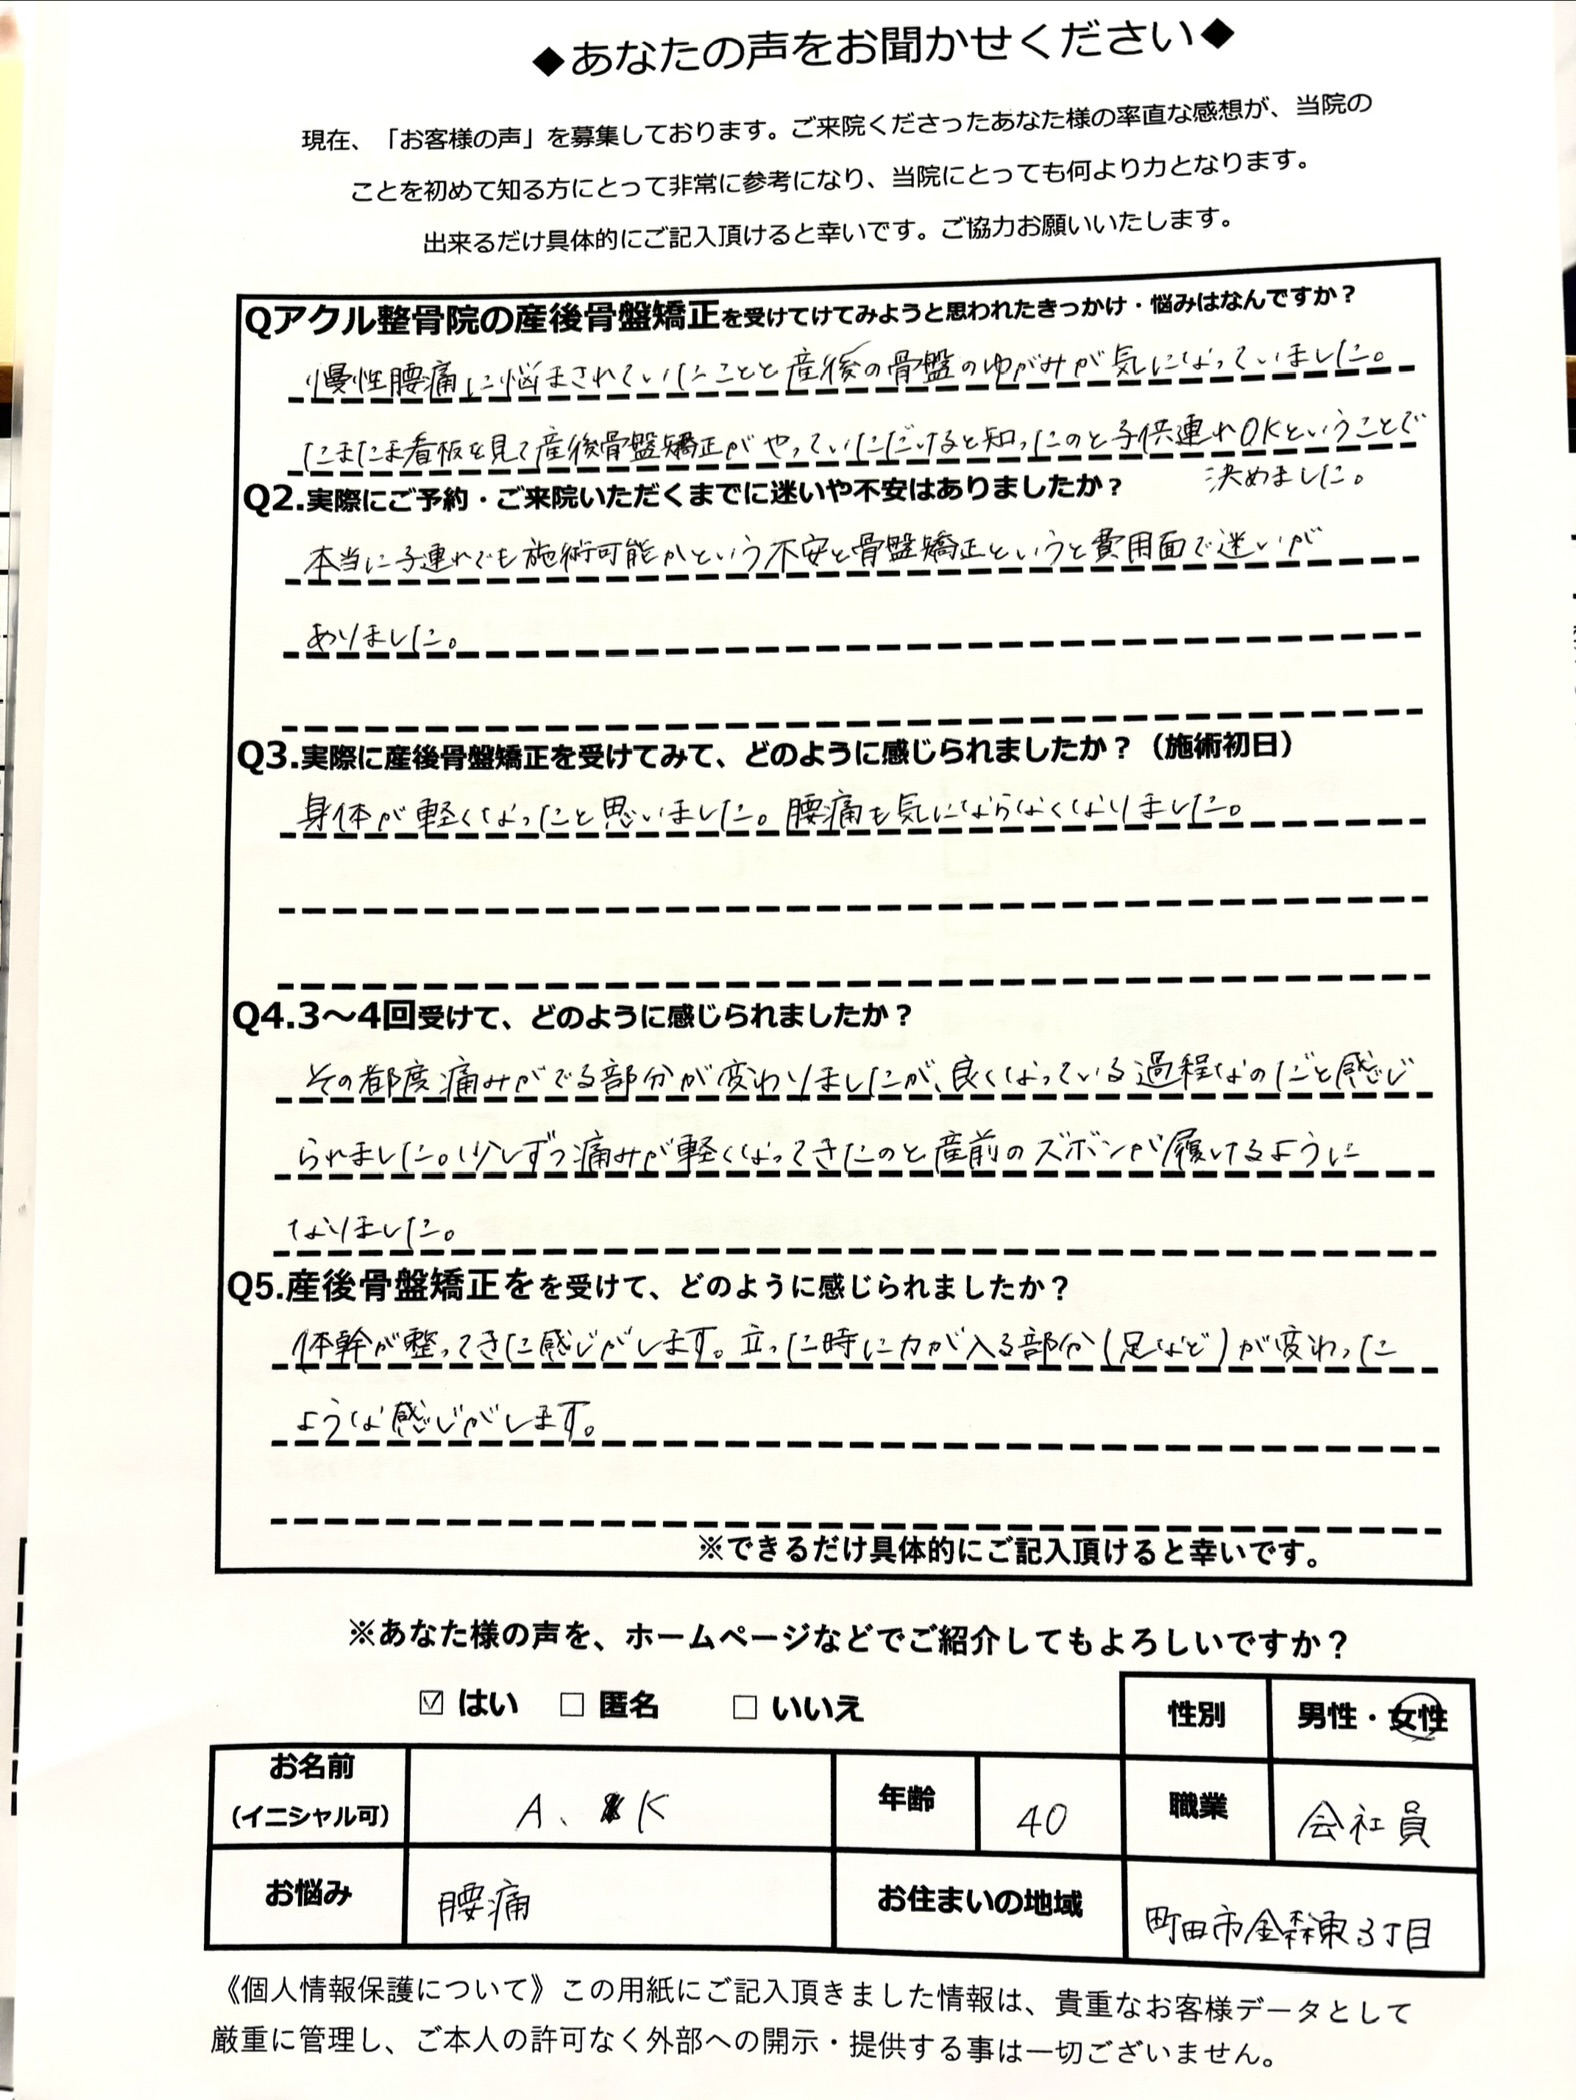 ◆あなたの声をお聞かせください◆
現在、「お客様の声」を募集しております。ご来院くださったあなた様の率直な感想が、当院の
ことを初めて知る方にとって非常に参考になり、当院にとっても何より力となります。
出来るだけ具体的にご記入頂けると幸いです。ご協力お願いいたします。
Qアクル整骨院の産後骨盤矯正を受けてけてみようと思われたきっかけ・悩みはなんですか？
慢性腰痛に悩まされていたことと産後の骨盤のゆがみが気になっていました。
たまたま看板を見て産後骨盤矯正がやっていただけると知ったのと子供連れOKということで
決めました。
Q2.実際にご予約・ご来院いただくまでに迷いや不安はありましたか？
本当に子連れでも施術可能かという不安と骨盤矯正というと費用面で迷いが
ありました。
Q3.実際に産後骨盤矯正を受けてみて、どのように感じられましたか？（施術初日）
身体が軽くなったと思いました。腰痛も気にならなくなりました。
Q4.3〜4回受けて、どのように感じられましたか？
その都度痛みがでる部分が変わりましたが、良くなっている過程なのだと感じ
られました。少しずつ痛みが軽くなってきたのと産前のズボンが履けるように
なりました。
Q5.産後骨盤矯正をを受けて、どのように感じられましたか？
体幹が整ってきた感じがします。立った時に力が入る部分(足など)が変わった
ような感じがします。
※できるだけ具体的にご記入頂けると幸いです。
※あなた様の声を、ホームページなどでご紹介してもよろしいですか？
☑ はい □ 匿名 □ いいえ
性別 男性・女性
お名前
（イニシャル可） A、K 年齢 40 職業 会社員
お悩み 腰痛 お住まいの地域 町田市金森東3丁目
《個人情報保護について》この用紙にご記入頂きました情報は、貴重なお客様データとして
厳重に管理し、ご本人の許可なく外部への開示・提供する事は一切ございません。